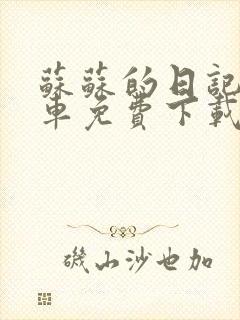 蘇蘇的日記
車免費下載
磯山沙也加